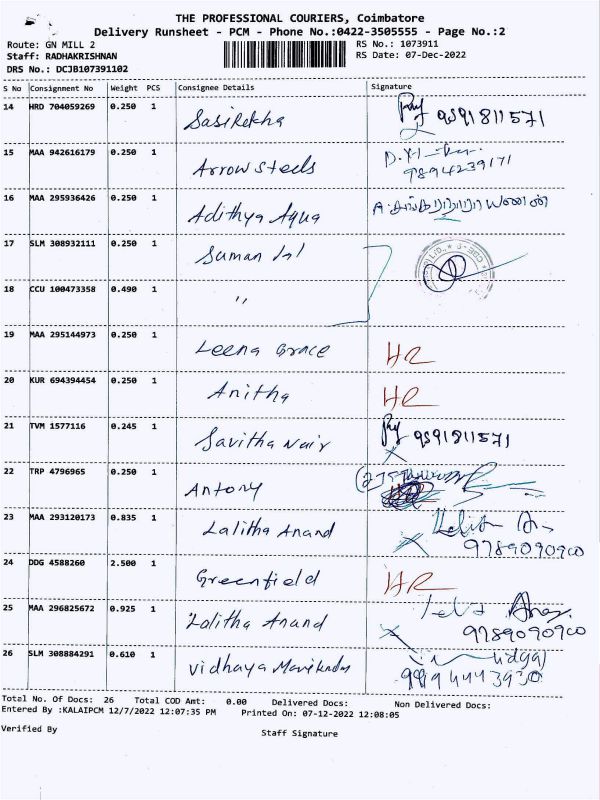 THE PROFESSIONAL COURIERS, Coimbatore
Delivery Runsheet - PCM - Phone No.:0422-3505555 - Page No.:2
Route: GN MILL 2 RS No.: 1073911
Staff: RADHAKRISHNAN RS Date: 07-Dec-2022
DRS No.: DCJB107391102
S No Consignment No Weight PCS Consignee Details Signature
14 HRD 704059269 0.250 1 Sasirekha 9591811571
15 MAA 942616179 0.250 1 Arrow steels
9894239171
16 MAA 295936426 0.250 1 Adithya Aqua
17 SLM 308932111 0.250 1 Suman lal
18 CCU 100473358 0.490 1 "
19 MAA 295144973 0.250 1 Leena Grace HR
20 KUR 694394454 0.250 1 Anitha HR
21 TVM 1577116 0.245 1 Savitha Nair 9591811571
22 TRP 4796965 0.250 1 Antony
23 MAA 293120173 0.835 1 Lalitha Anand
9789090900
24 DDG 4588260 2.500 1 Greenfield HR
25 MAA 296825672 0.925 1 Lalitha Anand
9789090900
26 SLM 308884291 0.610 1 Vidhaya
Total No. Of Docs: 26 Total COD Amt: 0.00 Delivered Docs: Non Delivered Docs:
Entered By :KALAIPCM 12/7/2022 12:07:35 PM Printed On: 07-12-2022 12:08:05
Verified By Staff Signature